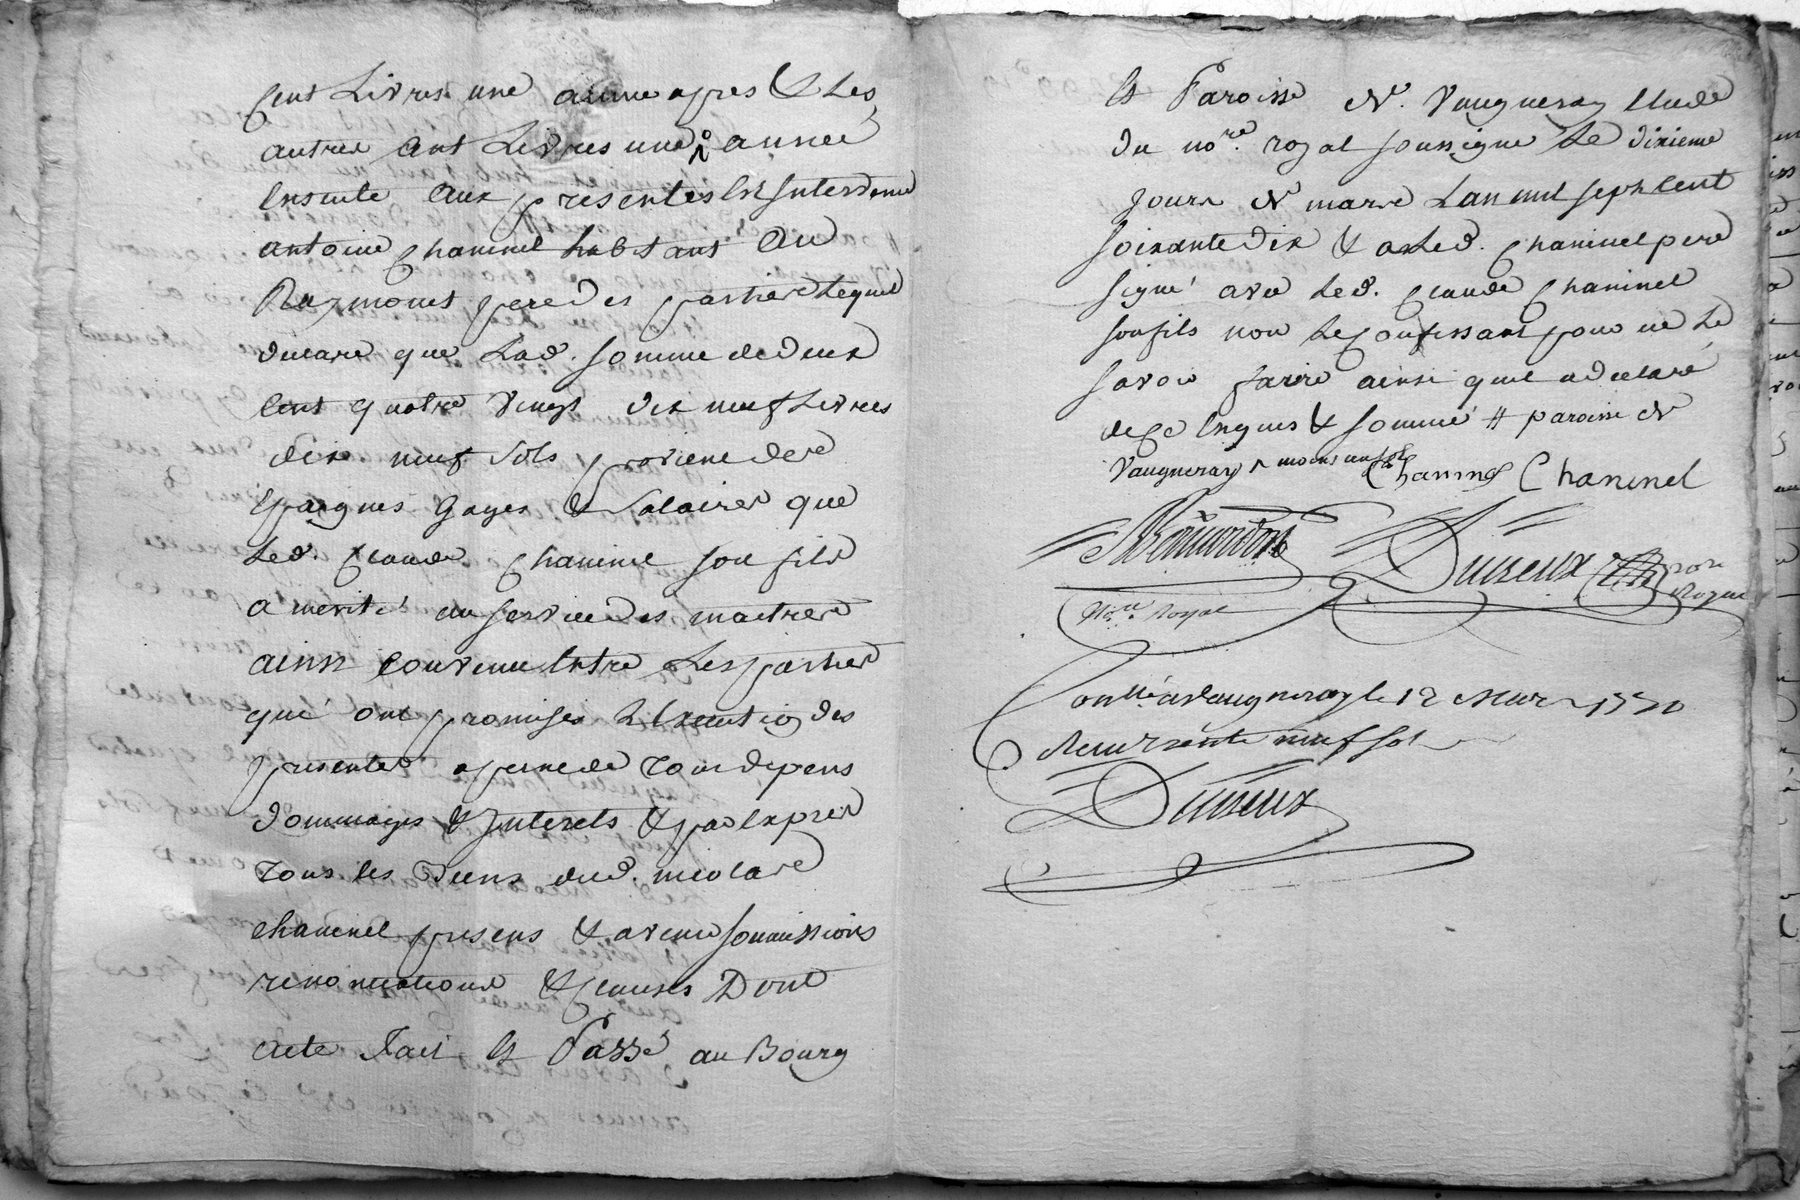 Cent Livres une année apres & Les
autres Cent Livres une année
Ensuite aux presentes Est Intervenu
antoine Chaninel habitant Au
Razmonet pere des parties Lequel
declare que Lad. somme de deux
Cent quatre vingt dix neuf Livres
dix neuf sols proviene de
Epargnes Gages & Salaires que
Led. Claude Chaninel son fils
a merité au service des maitres
ainsi convenu Entre Les parties
qui ont promises L'Execution des
presentes a peine de tous depens
dommages & Interets & par Exprès
tous les Biens dud. nicolas
chaninel presens & avenir soumissions
renonciations & clauses Dont
acte Fait Et Passé au Bourg
Et Paroisse de Vaugneray Etude
du no.re royal soussigné Le dixieme
Jour de mars Lan mil sept Cent
soixante dix & a Led. Chaninel pere
signé avec Led. Claude Chaninel
son fils non Le Confessant pour ne Le
savoir faire ainsi quil a declaré
de ce Enquis & sommé # paroisse de
Vaugneray ^ moins un sol Chaninel Chaninel
Dutreux
No.re Royal
Con.llé a Vaugneray le 12 Mars 1770
Recu trente neuf sols
Dutreux